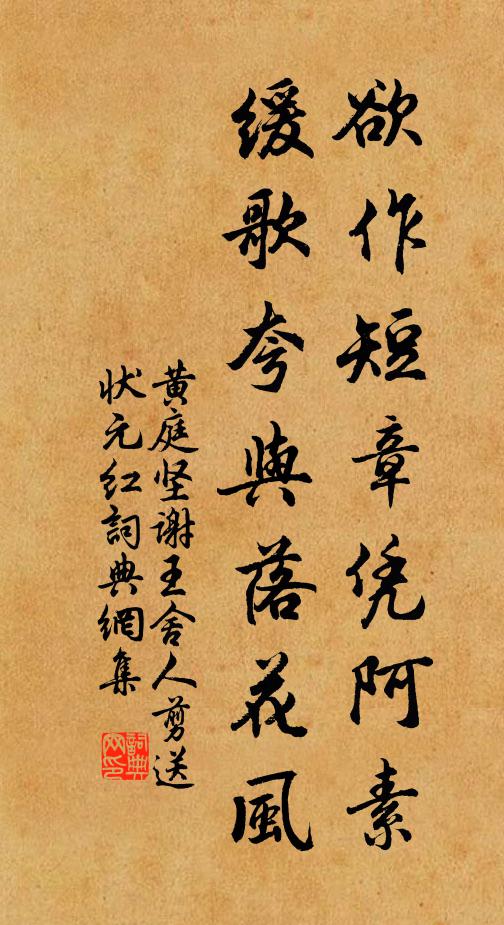 欲作短章凭阿素
缓歌夸與落花風
黄庭坚謝王舍人剪送
状元红詞典網集
詞典
网印